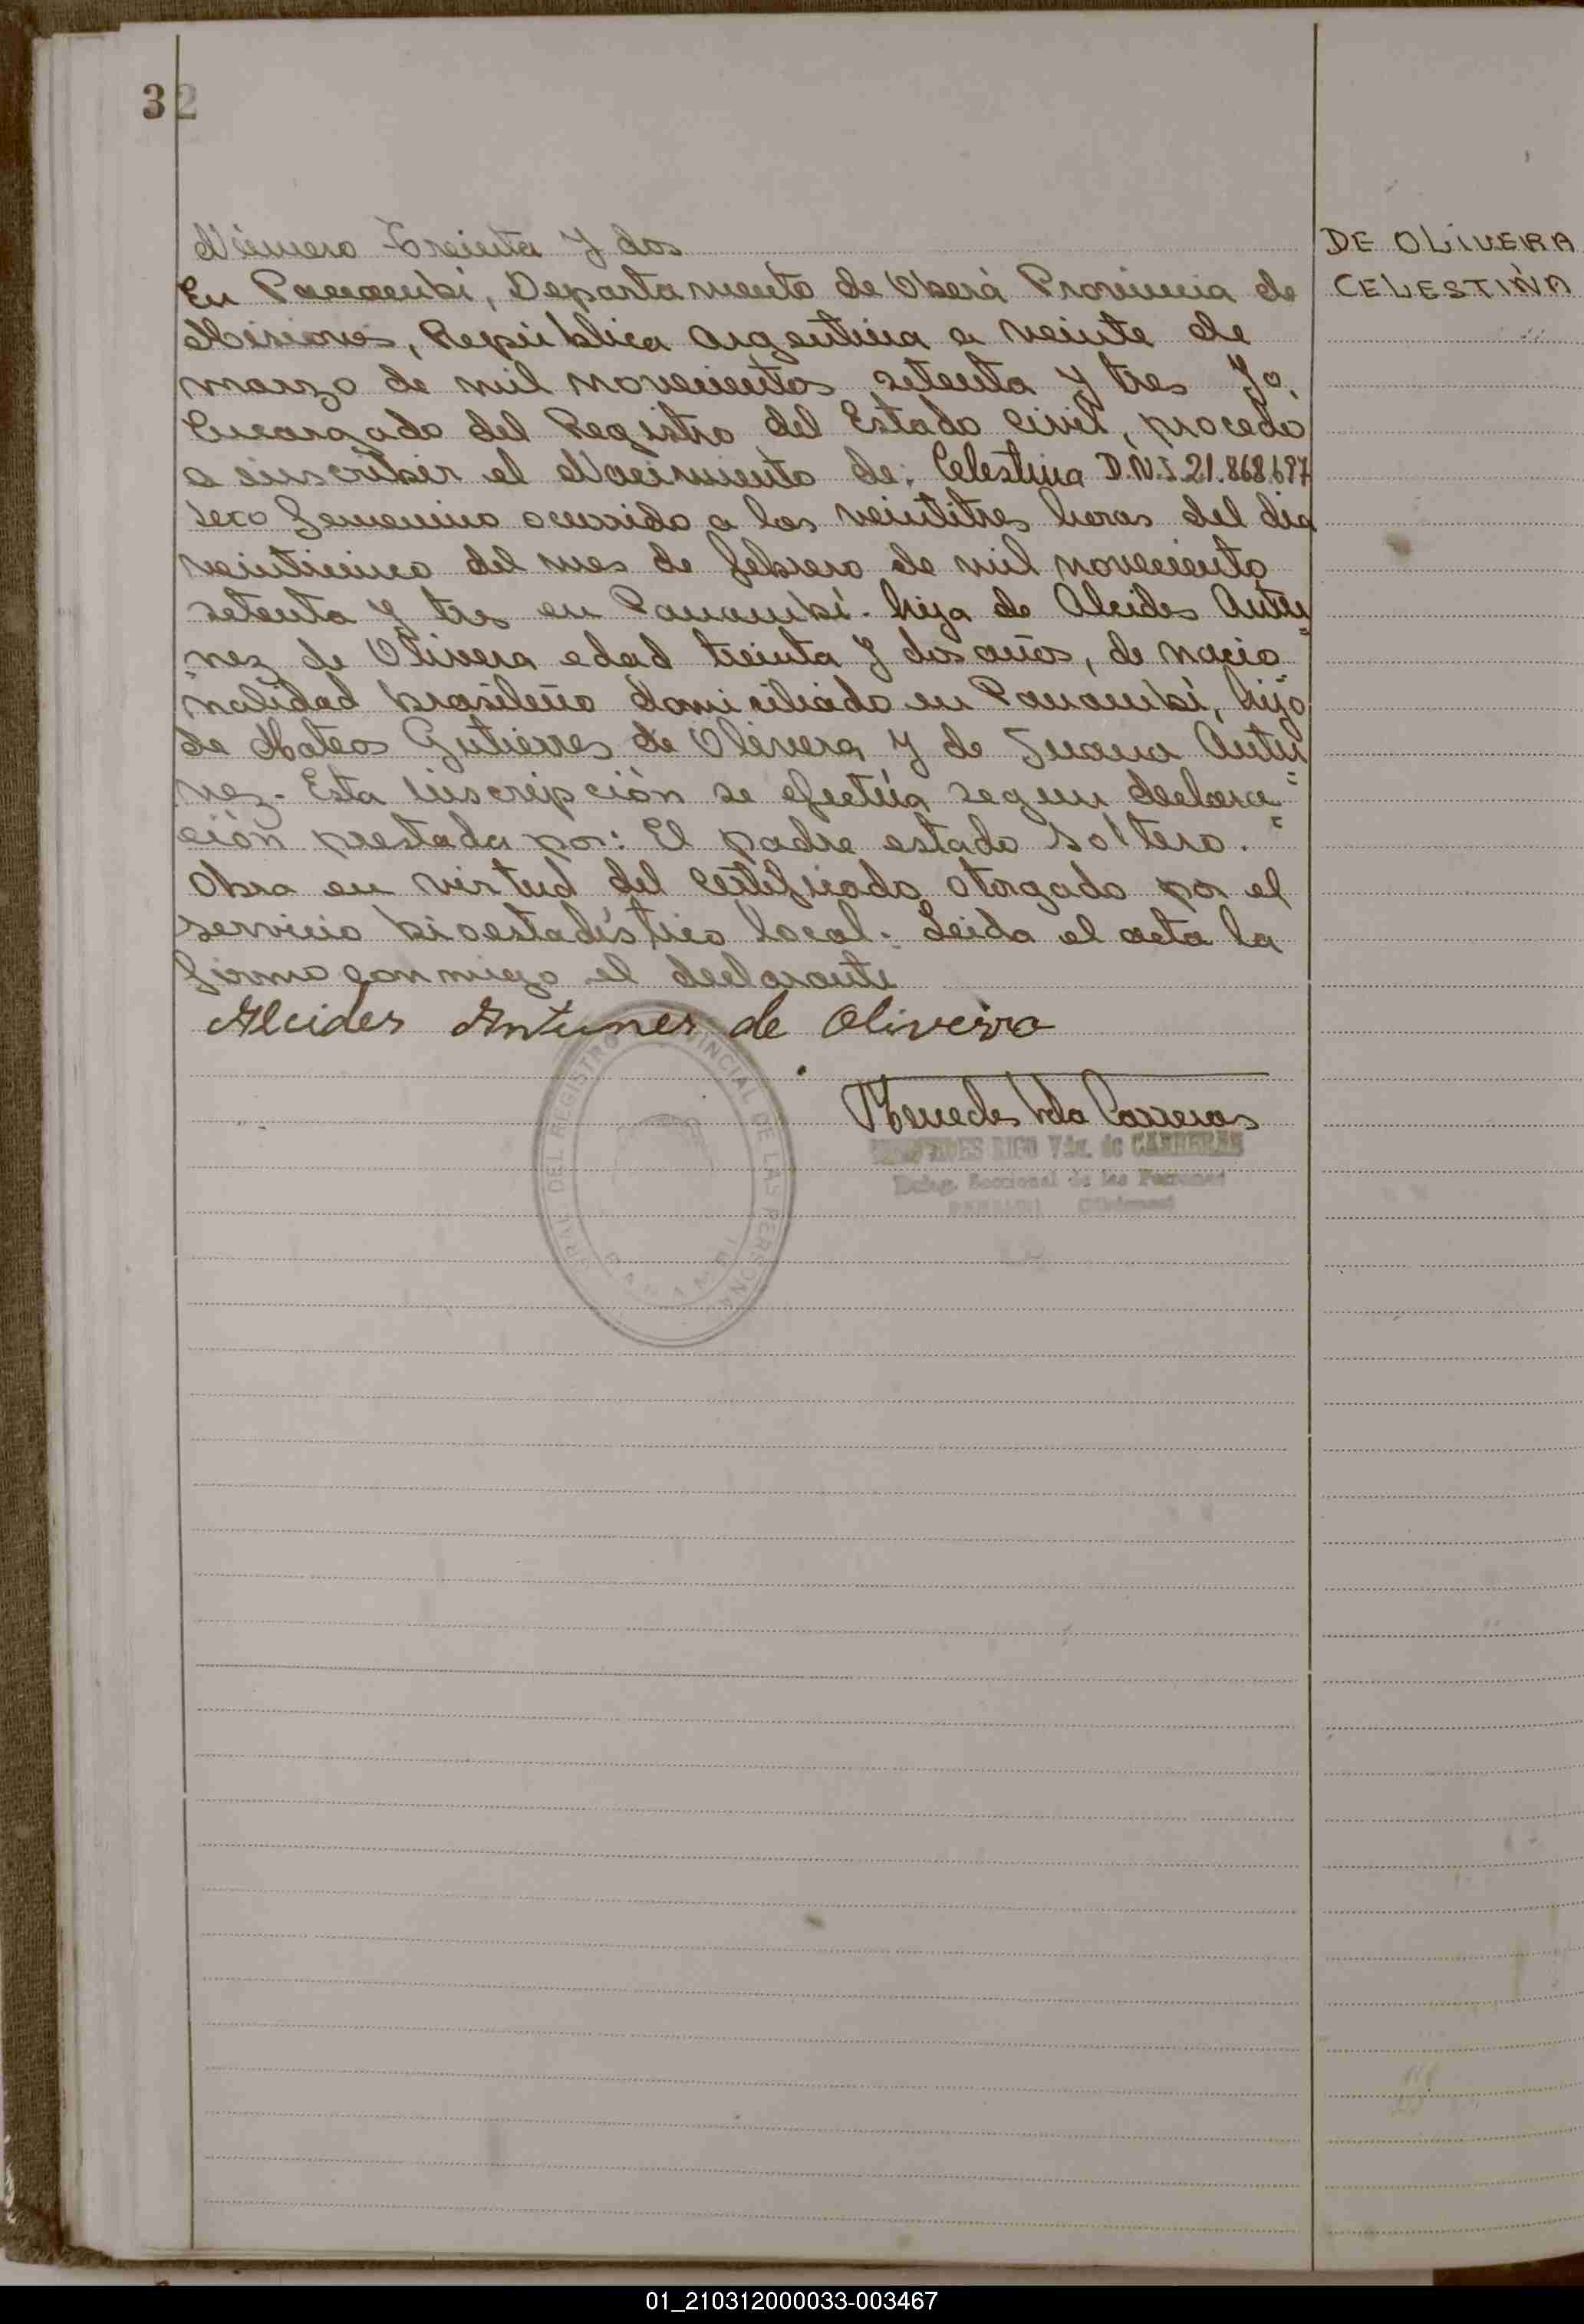 32
Número Treinta y dos
DE OLIVERA
CELESTINA
En Panambí, Departamento de Oberá Provincia de
Misiones, República Argentina a veinte de
marzo de mil novecientos setenta y tres Yo,
Encargado del Registro del Estado Civil, procedo
a inscribir el Nacimiento de: Celestina D.N.I. 21.868.697
sexo femenino ocurrido a las veintitres horas del dia
veinticinco del mes de febrero de mil novecientos
setenta y tres en Panambí. hija de Alcides Antu=
nez de Olivera edad treinta y dos años, de nacio
nalidad brasileño domiciliado en Panambí, hijo
de Mateo Gutierres de Olivera y de Juana Antu=
nez. Esta inscripción se efectúa segun declara=
ción prestada por: El padre estado soltero.
Obra en virtud del certificado otorgado por el
servicio bioestadístico local. Leida el acta la
firma conmigo el declarante
Alcides Antunes de Oliveira
Mercedes Vda Carreras
MERCEDES RICO Vda. de CARRERAS
Deleg. Seccional de las Personas
PANAMBI (Misiones)
DEL REGISTRO PROVINCIAL DE LAS PERSONAS
PANAMBI
01_210312000033-003467